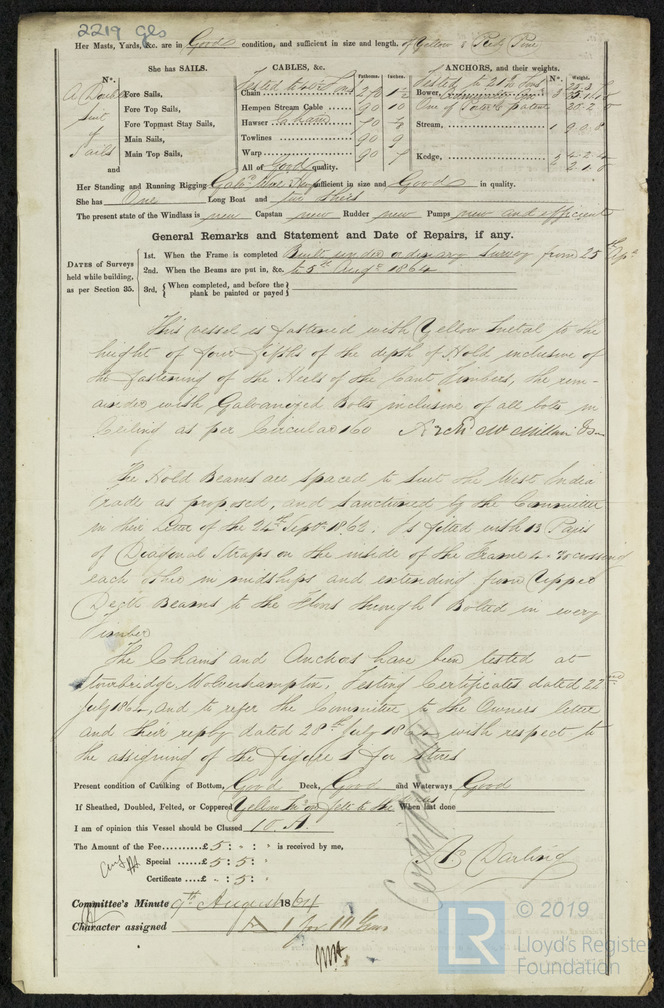 2219 Gls
Her Masts, Yards, &c. are in Good condition, and sufficient in size and length. of Yellow & Red Pine
She has SAILS.
CABLES, &c.
Fathoms. Inches.
ANCHORS, and their weights.
Nº. Weight.
Nº.
A Double
suit
of
Sails
and
Fore Sails,
Fore Top Sails,
Fore Topmast Stay Sails,
Main Sails,
Main Top Sails,
Tested to
Chain
Hempen Stream Cable 90 10
Hawser
Towlines 90 9
Warp 90
All of Good quality.
Tested to
Bower, 3
One of
Stream, 1
Kedge,
Her Standing and Running Rigging Galvd. Wire & Hemp sufficient in size and Good in quality.
She has One Long Boat and
The present state of the Windlass is new Capstan new Rudder new Pumps new and efficient
General Remarks and Statement and Date of Repairs, if any.
DATES of Surveys held while building, as per Section 35.
1st. When the Frame is completed Built under ordinary Survey from 25th Apl.
2nd. When the Beams are put in, &c. to 5th Augt 1864
3rd. { When completed, and before the plank be painted or payed }
This vessel is fastened with Yellow metal to the
height of four fifths of the depth of Hold inclusive of
the fastening of the Heels of the Cant Timbers, the rem-
ainder with Galvanized Bolts inclusive of all bolts in
Ceiling as per Circular 160 Archd. McMillan & Son
The Hold Beams are spaced to suit the West India
trade as proposed, and sanctioned by the Committee
in their Letter of the 24th Septr. 1862. Is fitted with 13 Pairs
of Diagonal Straps on the inside of the Frame crossing
each other in midships and extending from Upper
Deck Beams to the Floors through Bolted in every
Timber
The Chains and Anchors have been tested at
Stourbridge, Wolverhampton, Testing Certificates dated 22nd
July 1864, and to refer the Committee to the Owners letter
and their reply dated 28th July 1864 with respect to
the assigning of the figure 1 for Stores
Present condition of Caulking of Bottom, Good Deck, Good and Waterways Good
If Sheathed, Doubled, Felted, or Coppered Yellow M. on felt to the When last done
I am of opinion this Vessel should be Classed 10 A
The Amount of the Fee...........£ 5 : " : " is received by me,
Special ......£ 5 : 5 :
Certificate ....£ " : 5 :
Certificate
A. Darling
Committee's Minute 9th August 1864
Character assigned A 1 for 10 Years
LR
© 2019
Lloyd's Register
Foundation